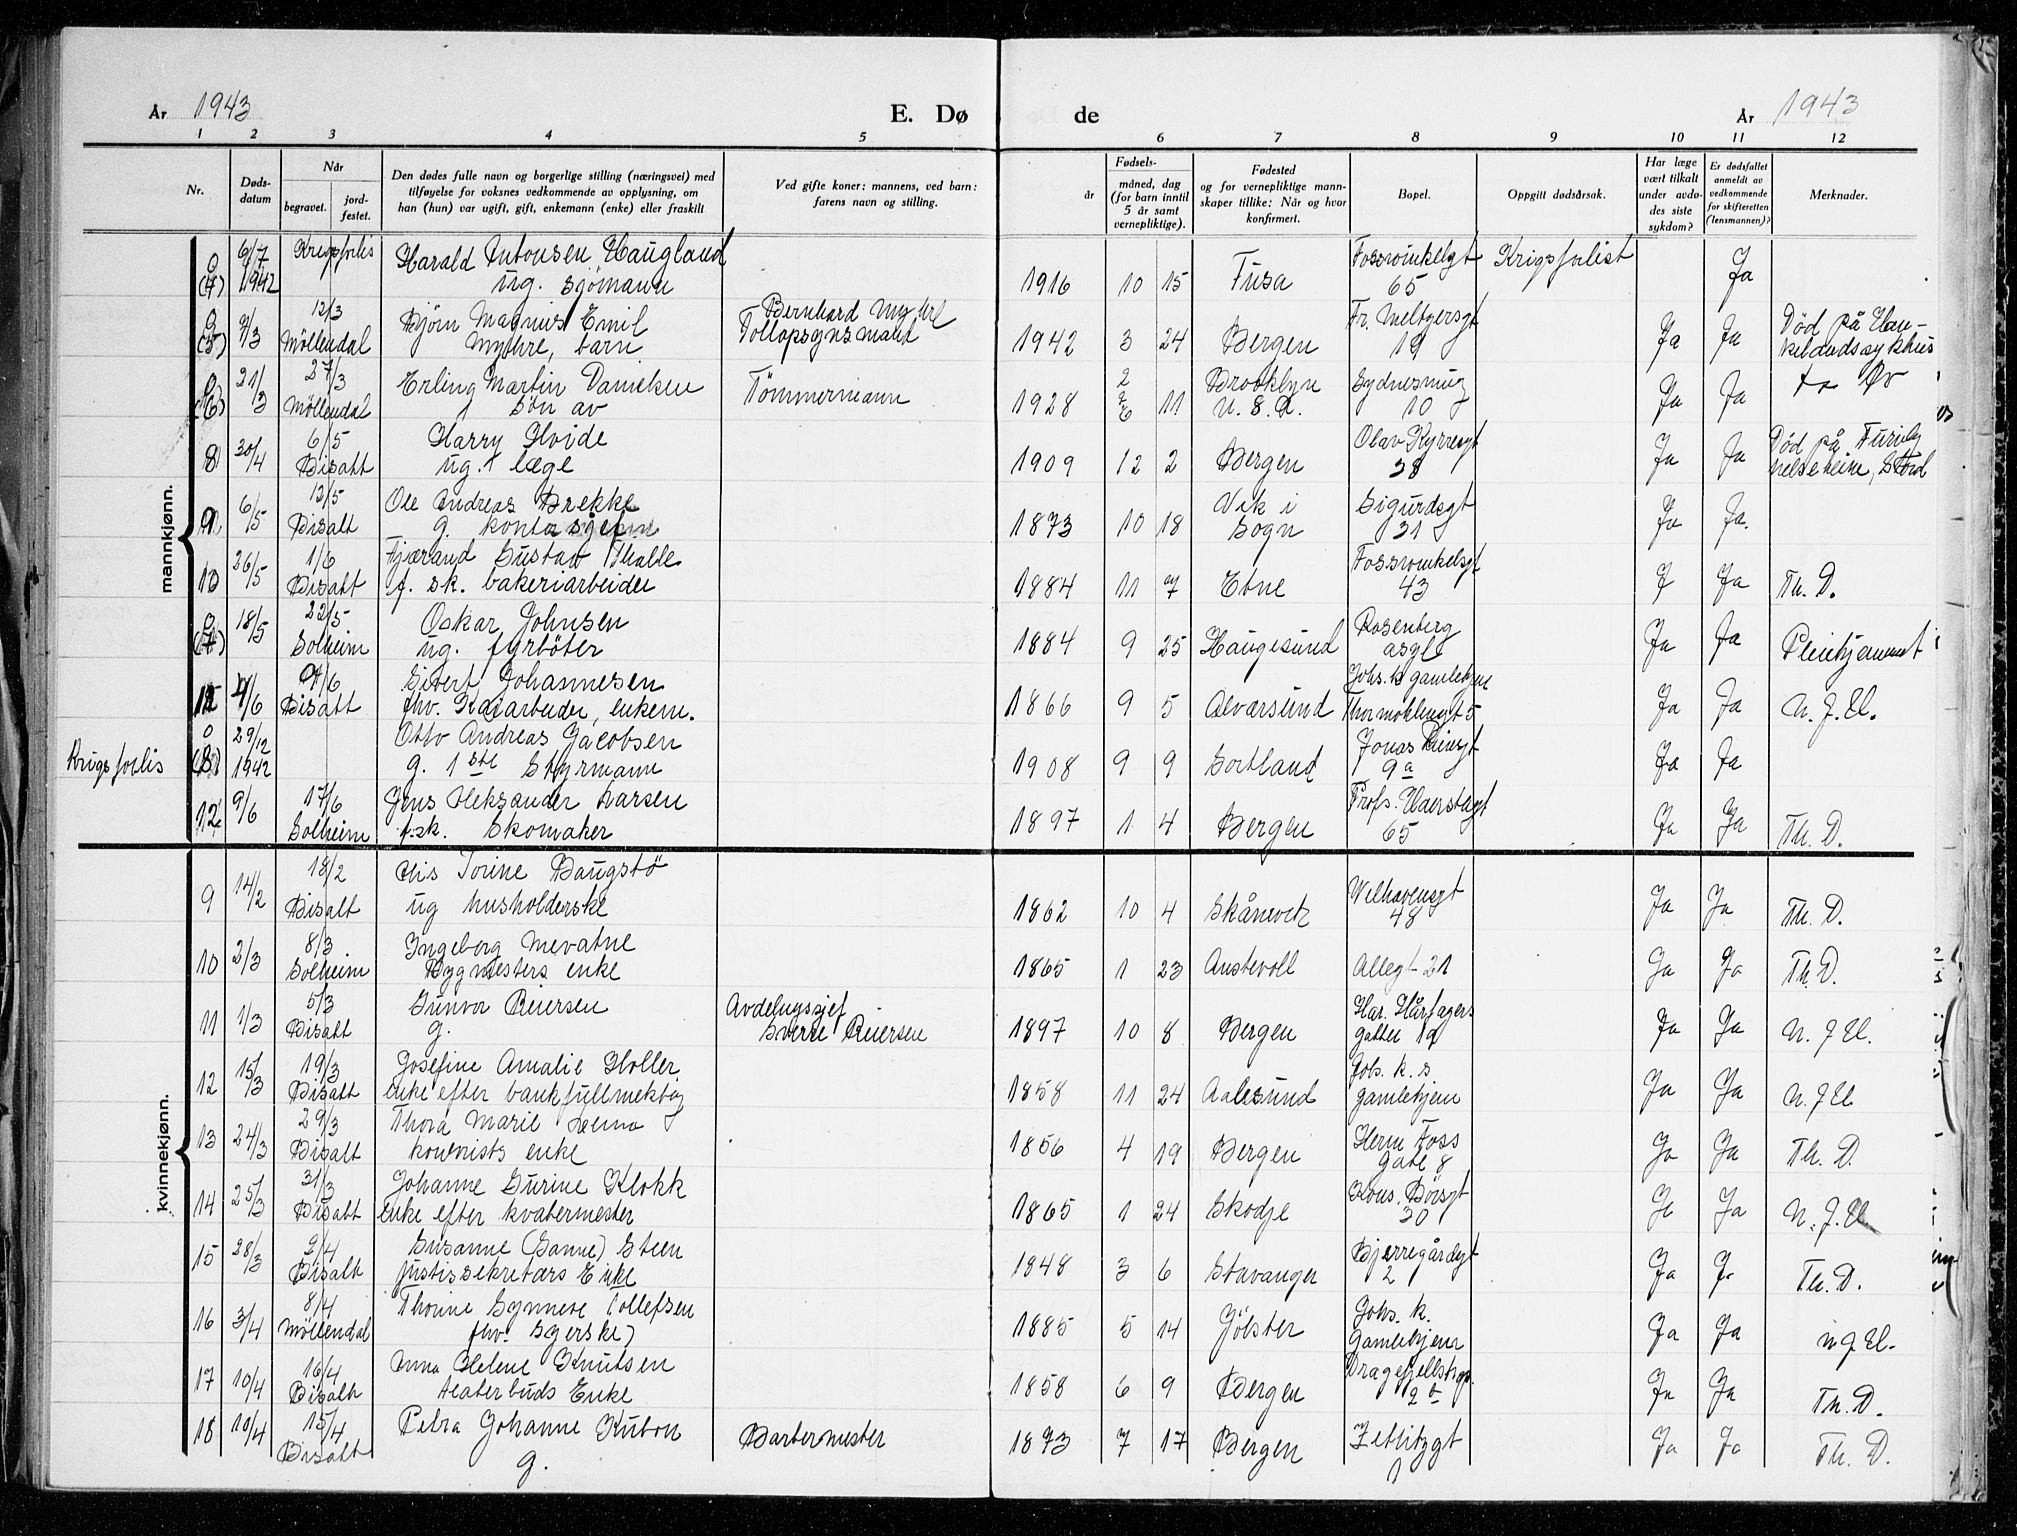 År 1943 E. Dø de År 1943
1 2 3 4 5 6 7 8 9 10 11 12
Nr.
Døds-
datum
Når
begravet.
jord-
festet.
Den dødes fulle navn og borgerlige stilling (næringsvei) med
tilføyelse for voksnes vedkommende av opplysning, om
han (hun) var ugift, gift, enkemann (enke) eller fraskilt
Ved gifte koner: mannens, ved barn:
farens navn og stilling.
år
Fødsels-
måned, dag
(for barn inntil
5 år samt
vernepliktige).
Fødested
og for vernepliktige mann-
skaper tillike: Når og hvor
konfirmert.
Bopel.
Oppgitt dødsårsak.
Har læge
vært tilkalt
under avdø-
des siste
sykdom?
Er dødsfallet
anmeldt av
vedkommende
for skifteretten
(lensmannen)?
Merknader.
mannkjønn.
0 6/7 Krigsforlis Harald Antonsen Haugland Fossvinkelsgt Krigsforlist
(4) 1942 ug. sjömann 1916 10 15 Fusa 65 Ja
0 9/3 12/3 Björn Magnus Emil Bernhard Myhre Fr. Meltzersgt Död på Hau-
(5) Möllendal Myhre, barn Tollopsynsmant 1942 3 24 Bergen 19 Ja Ja kelandsykhus
0 21/3 27/3 Erling Martin Dameken Tömmermann 2 Brooklyn Sydnesmug
(6) Möllendal sön av 1928 6 11 U.S.A. 10 Ja Ja
8 30/4 6/5 Harry Hvide Olav Kyrresgt Död på
Bisatt ug. læge 1909 12 2 Bergen 38 Ja Ja
9 6/5 12/5 Ole Andreas Brekke Vik i Sigurdsgt
Bisatt g. kontorsjef 1873 10 18 Sogn 31 Ja Ja.
10 26/5 1/6 Fjærand Gustav Fossvinkelsgt
Bisatt f. sk. bakeriarbeider 1884 11 7 Etne 43 J Ja Th. D.
0 18/5 22/5 Oskar Johnsen Rosenberg
(7) Solheim ug. fyrböter 1884 9 25 Haugesund asgt Ja Ja Pleiehjemmet
11 4/6 9/6 Sivert Johannesen Johs. k gamlehjem
Bisatt fhv. Kaiarbeider, enkem. 1866 9 5 Alversund Thormöhlensgt 5 Ja Ja N. J. H.
Krigsforlis 0 29/12 Otto Andreas Jacobsen Jonas Reinsgt
(8) 1942 g. 1ste Styrmann 1908 9 9 Sortland 9a Ja Ja
12 9/6 17/6 Jens Aleksander Larsen Profs. Hanstagt
Solheim f.sk. Skomaker 1897 1 4 Bergen 65 Ja Ja Th. D.
kvinnekjønn.
9 14/2 18/2 Elis Torine Haugstö Welhavensgt
Bisatt ug husholderske 1862 10 4 Skånevik 48 Ja Ja Th. D.
10 2/3 8/3 Ingeborg Mevatne
Solheim Bygmesters enke 1865 1 23 Austevoll Allegt 21 Ja Ja Th. D.
11 1/3 5/3 Gunvor Reiersen Avdelingssjef Har. Hårfagers
Bisatt g. Sverre Reiersen 1897 10 8 Bergen gatte 19 Ja Ja N. J H.
12 15/3 19/3 Josefine Amalie Holler Johs. k. s
Bisatt enke efter bankfullmektig 1858 11 24 Aalesund gamlehjem Ja Ja N. J H
13 24/3 29/3 Thora Marie Lexma Herm Foss
Bisatt kontorists enke 1856 4 19 Bergen Gate 8 Ja Ja Th. D.
14 25/3 31/3 Johanne Gurine Klokk Kons. Börsgt
Bisatt enke efter kvatermester 1865 1 24 Skodje 30 Ja Ja N. J. H.
15 28/3 2/4 Susanne (Sanne) Steen Bjerregårdsgt
Bisatt Justissekretærs Enke 1848 3 6 Stavanger 2 Ja J. Th. D.
16 3/4 8/4 Thorine Synneve Tollefsen Johs. k.
Möllendal fhv. Syerske) 1885 5 14 Jölster Gamlehjem Ja Ja N J H.
17 10/4 16/4 Anna Helene Knutsen Dragefjellstrp.
Bisatt teaterbuds Enke 1858 6 9 Bergen 2 b Ja Ja Th. D.
18 10/4 15/4 Petra Johanne Kubon Barbermester Zetlitzgt
Bisatt g. 1873 7 17 Bergen 1 Ja Ja Th. D.